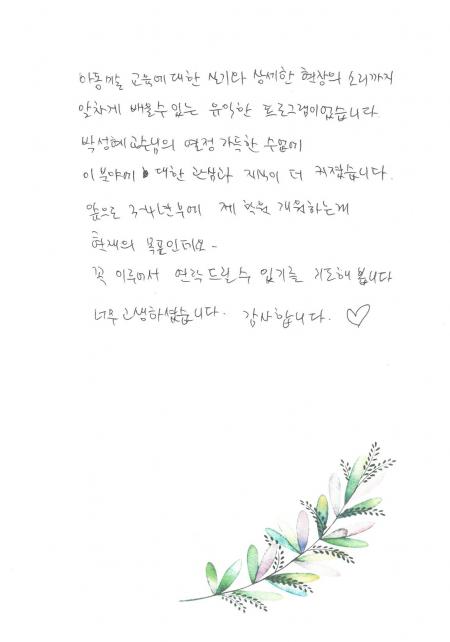 아동미술 교육에 대한 실기와 상세한 현장의 소리까지
알차게 배울수 있는 유익한 프로그램이었습니다
박성혜교수님의 열정 가득한 수업에
이 분야에 대한 관심과 지식이 더 커졌습니다.
앞으로 3~4년후에 제 학원 개원하는게
현재의 목표인데요~
꼭 이루어서 연락 드릴 수 있기를 기도해 봅니다
너무 고생하셨습니다. 감사합니다. ♡